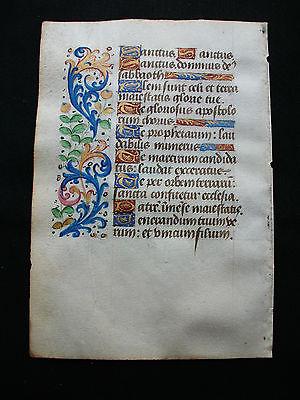 Sanctus, Sanctus,
Sanctus, dominus de
sabbaoth
Pleni sunt celi et terra
maiestatis glorie tue
Te gloriosus apostolo
rum chorus
Te prophetarum: lau
dabilis numerus
Te martirum candida
tus: laudat exercitus
Te per orbem terrarum:
sancta confitetur ecclesia
Patrem: inmense maiestatis
Venerandum tuum ve
rum: et unicum filium.